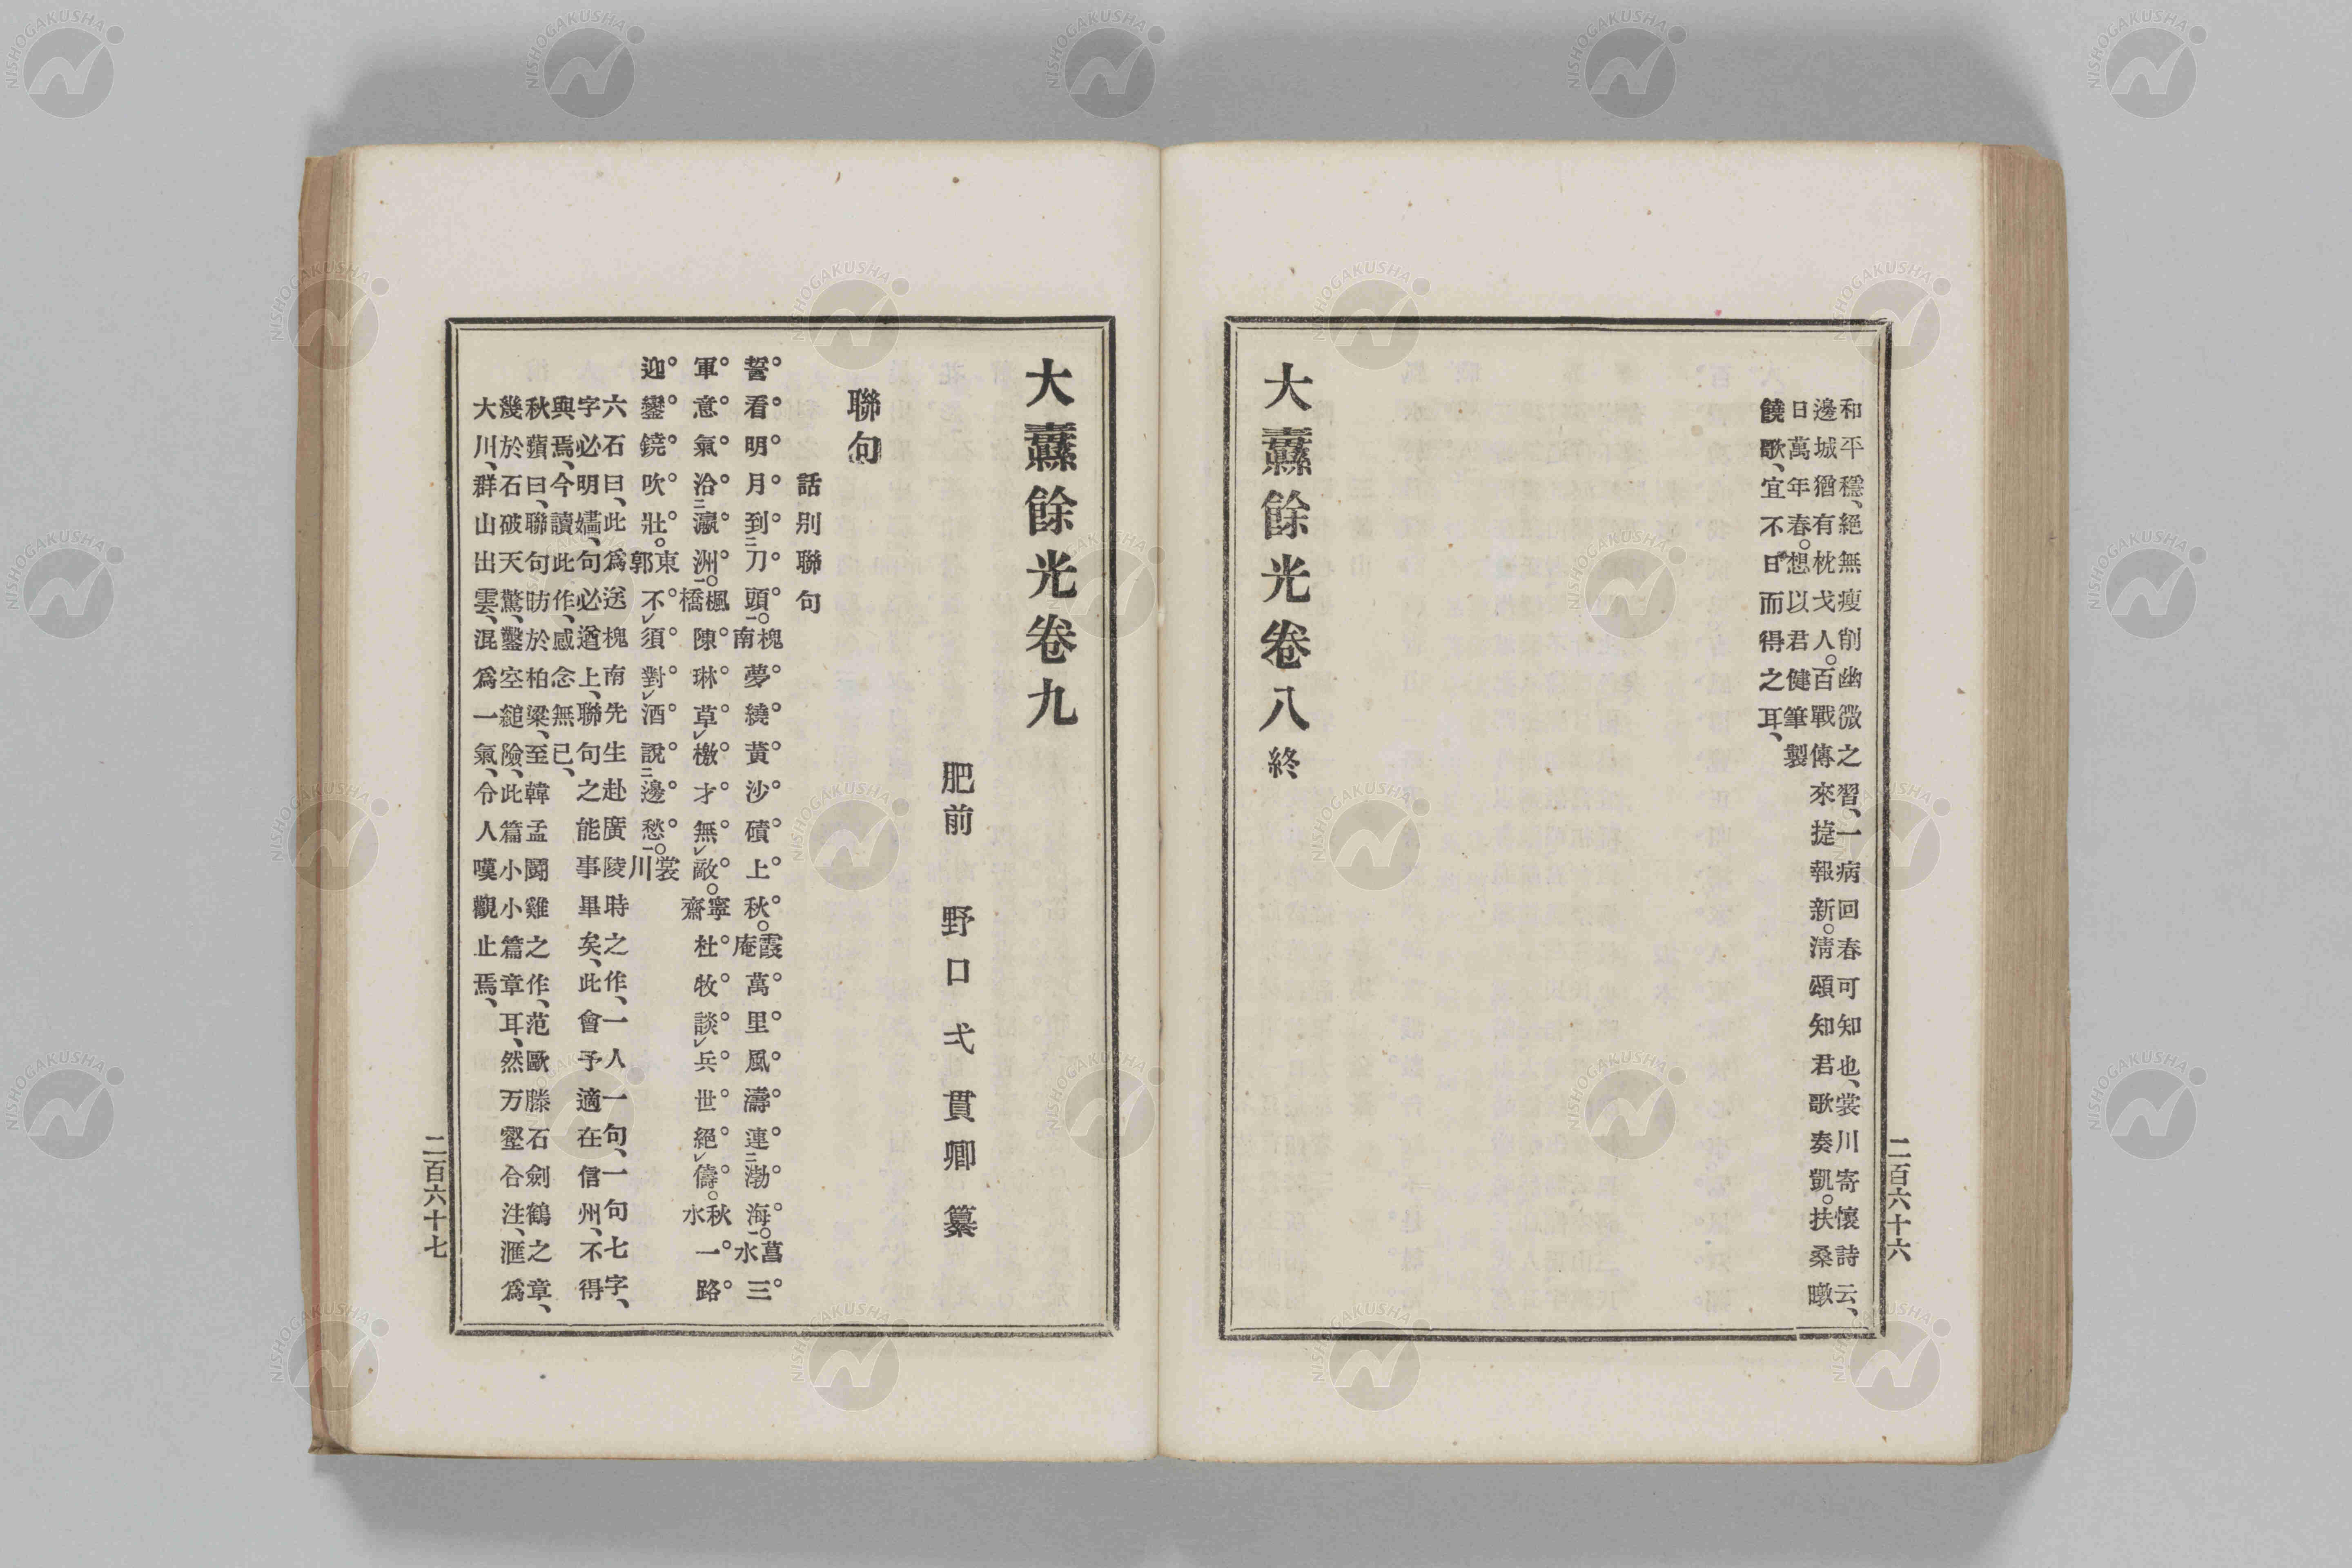 和平穩、絕無瘦削幽微之習、一病回春可知也、裳川寄懷詩云、
邊城猶有枕戈人。百戰傳來捷報新。淸頌知君歌奏凱。扶桑暾
日萬年春。想以君健筆製
鐃歌、宜不日而得之耳、
大纛餘光卷八終
二百六十六
大纛餘光卷九
肥前 野口弌貫卿 纂
聯句
話別聯句
誓看明月到二刀頭。一槐南夢繞黃沙磧上秋。霞庵萬里風濤連二渤海。一菖水三
軍意氣洽二瀛洲。一楓橋陳琳草レ檄才無レ敵。寧齋杜牧談レ兵世絕レ儔。秋水一路
迎鑾鐃吹壯。東郭不レ須對レ酒說二邊愁。一裳川
六石曰、此爲送槐南先生赴廣陵時之作、一人一句、一句七字、
字必明嫿、句必遒上、聯句之能事畢矣、此會予適在信州、不得
與焉、今讀此作、感念無已、
秋蘋曰、聯句昉於柏梁、至韓孟鬪雞之作、范歐滕石劍鶴之章、
幾於石破天驚、鑿空縋險、此篇小小篇章耳、然万壑合注、滙爲
大川、群山出雲、混爲一氣、令人嘆觀止焉、
二百六十七
NISHOGAKUSHA